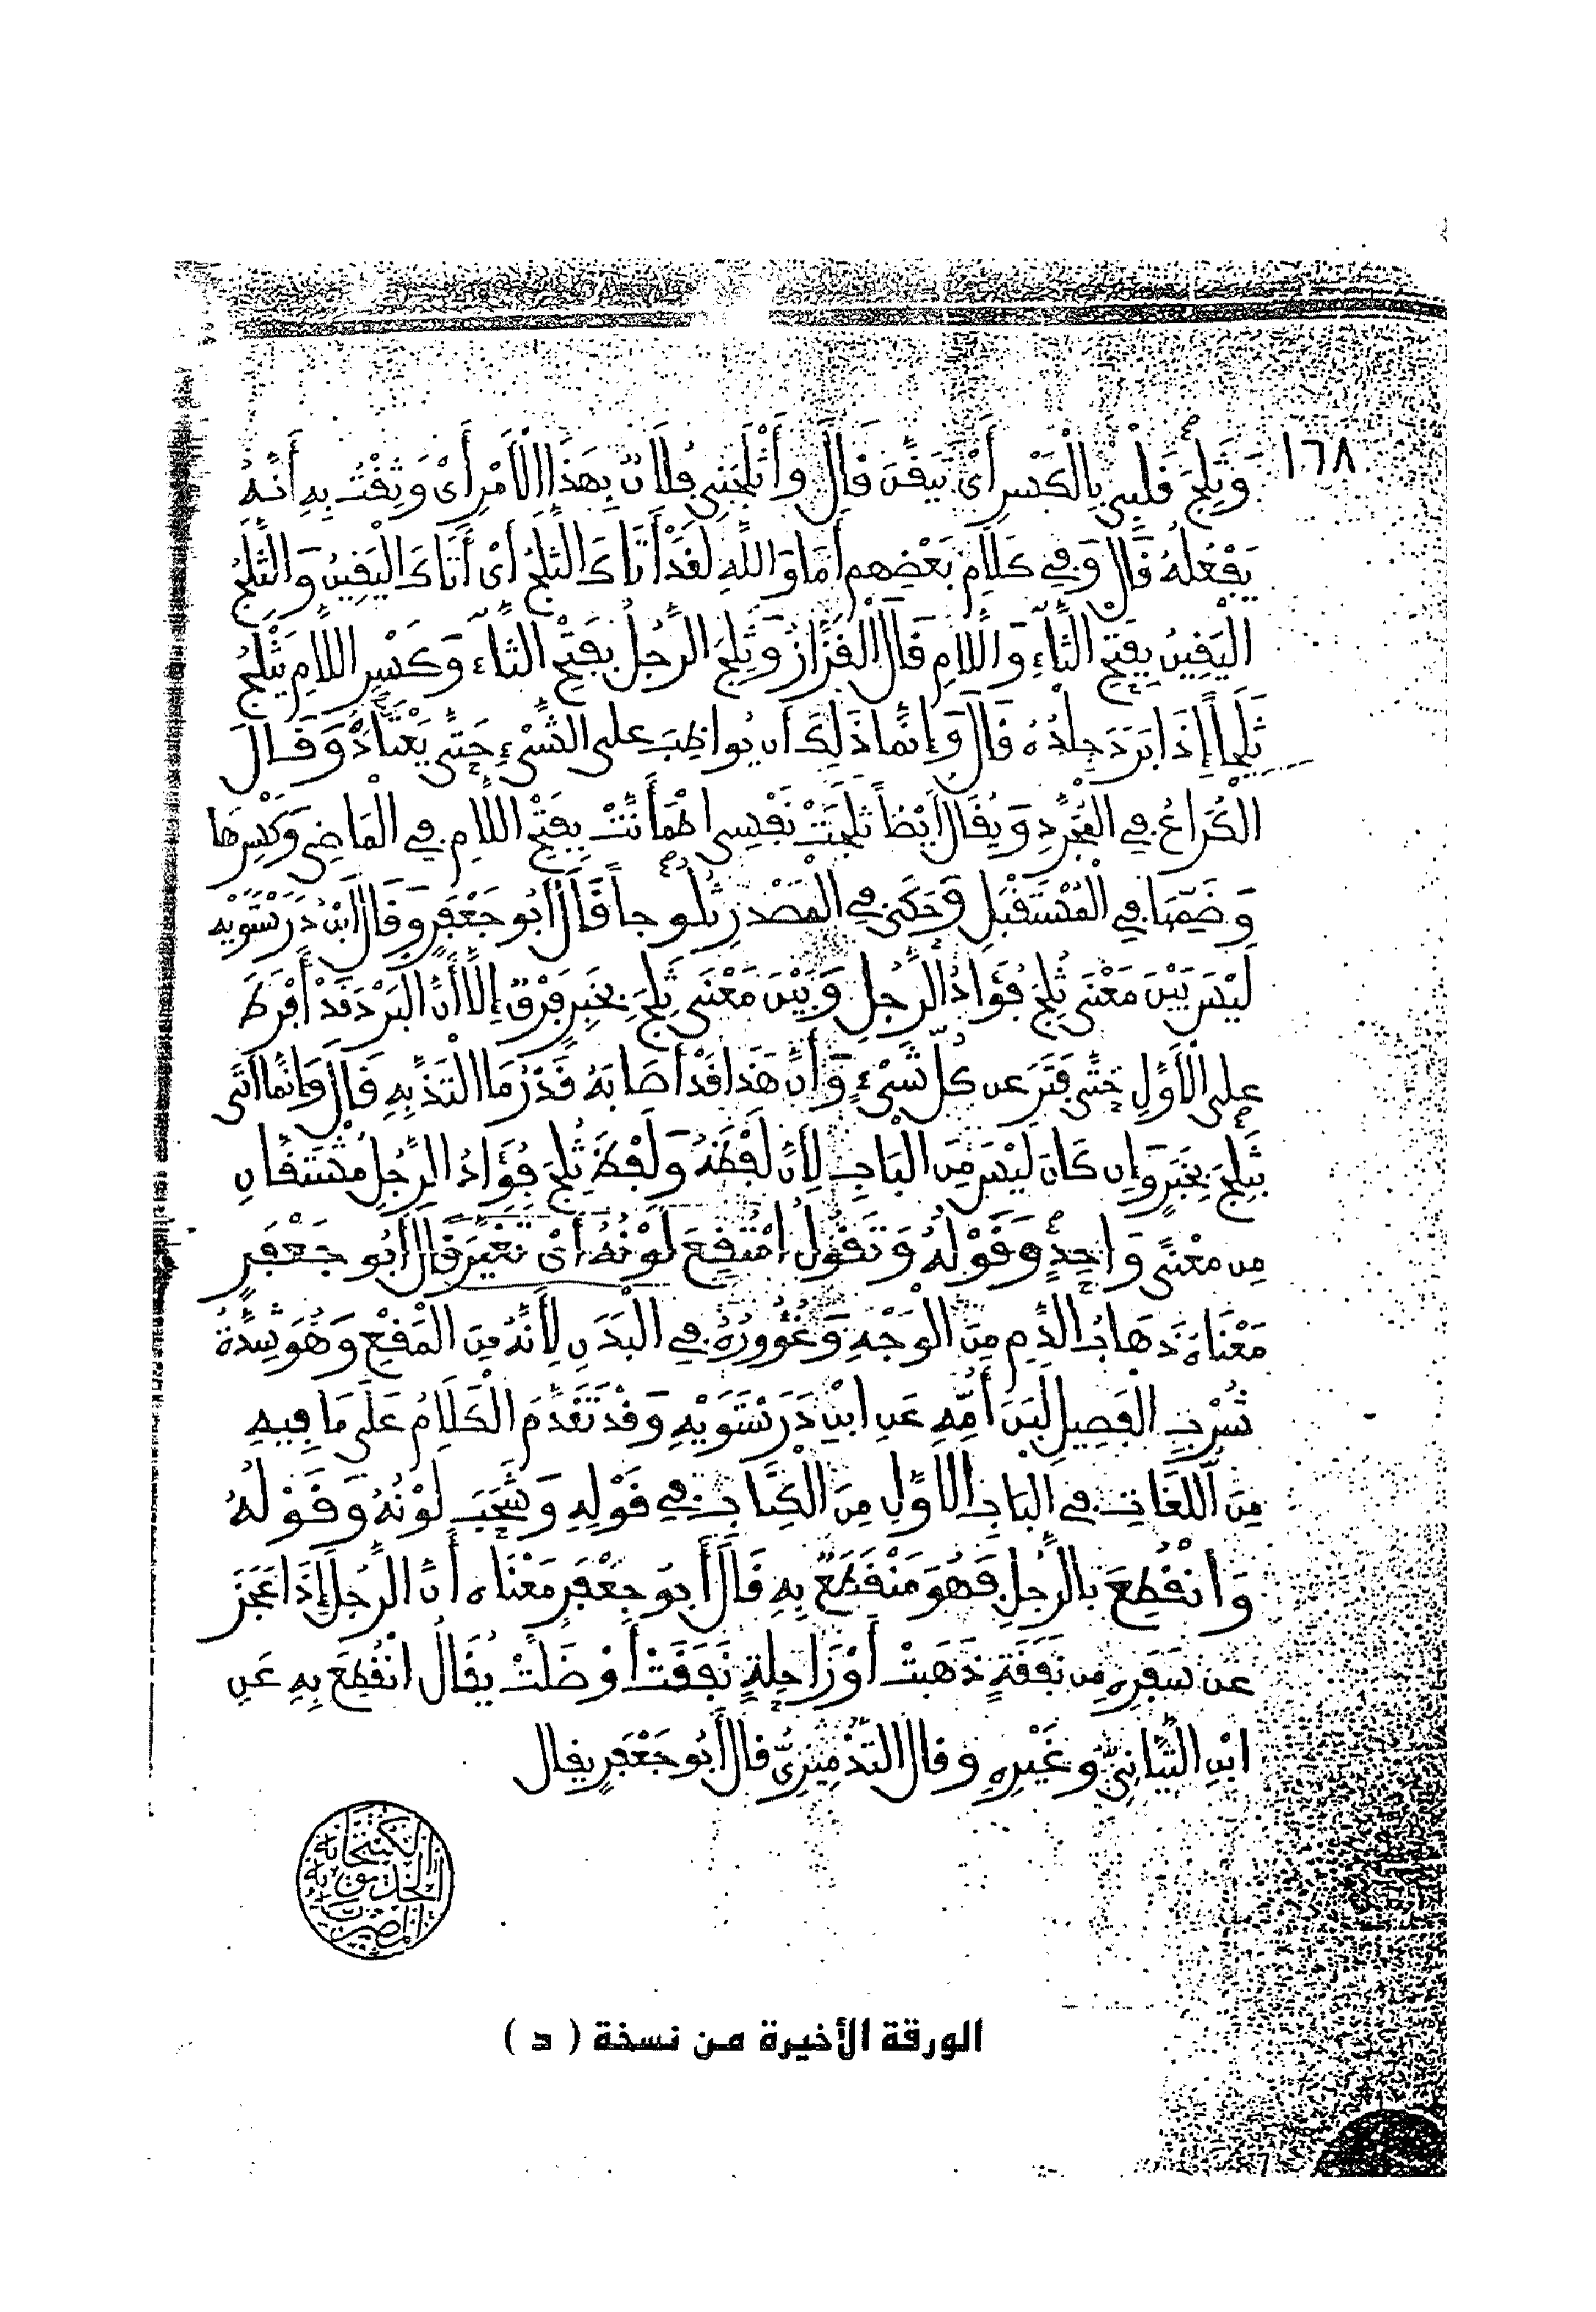 ١٦٨
وَثَلِجَ قَلْبِي بِالْكَسْرِ أَيْ تَيَقَّنَ قَالَ وَأَثْلَجَنِي فُلَانٌ بِهَذَا الْأَمْرِ أَيْ وَثِقْتُ بِهِ أَنَّهُ
يَفْعَلُهُ قَالَ وَفِي كَلَامِ بَعْضِهِم أَمَا وَاللَّهِ لَقَدْ أَتَاكَ الثَّلَجُ أَيْ أَتَاكَ الْيَقِينُ وَالثَّلَجُ
الْيَقِينُ بِفَتْحِ الثَّاءِ وَاللَّامِ قَالَ الْقَزَّازُ وَثَلِجَ الرَّجُلُ بِفَتْحِ الثَّاءِ وَكَسْرِ اللَّامِ يَثْلَجُ
ثَلَجاً إِذَا بَرَدَ جِلْدُهُ قَالَ وَإِنَّمَا ذَلِكَ أَن يُوَاظِبَ عَلَى الشَّيْءِ حَتَّى يَعْتَادَهُ وَقَالَ
الْكُرَاعُ فِي الْمُجَرَّدِ وَيُقَالُ أَيْضاً ثَلَجَتْ نَفْسِي اطْمَأَنَّتْ بِفَتْحِ اللَّامِ فِي الْمَاضِي وَكَسْرِهَا
وَضَمِّهَا فِي الْمُسْتَقْبَلِ وَحَكَى فِي الْمَصْدَرِ ثُلُوجاً قَالَ أَبُو جَعْفَرٍ وَقَالَ ابْنُ دَرَسْتَوَيْهِ
لَيْسَ بَيْنَ مَعْنَى ثُلِجَ فُؤَادُ الرَّجُلِ وَبَيْنَ مَعْنَى ثَلِجَ بِخَبَرٍ فَرْقٌ إِلَّا أَنَّ الْبَرْدَ قَدْ أَفْرَطَ
عَلَى الْأَوَّلِ حَتَّى فَتَرَ عَن كُلِّ شَيْءٍ وَأَنَّ هَذَا قَدْ أَصَابَهُ قَدْرُ مَا الْتَذَّ بِهِ قَالَ وَإِنَّمَا أَتَى
بِثَلِجَ بِخَبَرٍ وَإِن كَانَ لَيْسَ مِنَ الْبَابِ لِأَنَّ لَفْظَهُ وَلَفْظَ ثُلِجَ فُؤَادُ الرَّجُلِ مُشْتَقَّانِ
مِن مَعْنًى وَاحِدٍ وَقَوْلُهُ وَتَقُولُ امْتُقِعَ لَوْنُهُ أَيْ تَغَيَّرَ قَالَ أَبُو جَعْفَرٍ
مَعْنَاهُ ذَهَابُ الدَّمِ مِنَ الْوَجْهِ وَغُؤُورُهُ فِي الْبَدَنِ لِأَنَّهُ مِنَ الْمَقْعِ وَهُوَ شِدَّةُ
شُرْبِ الْفَصِيلِ لَبَنَ أُمِّهِ عَنِ ابْنِ دَرَسْتَوَيْهِ وَقَدْ تَقَدَّمَ الْكَلَامُ عَلَى مَا فِيهِ
مِنَ اللُّغَاتِ فِي الْبَابِ الْأَوَّلِ مِنَ الْكِتَابِ فِي قَوْلِهِ وَشَحَبَ لَوْنُهُ وَقَوْلُهُ
وَانْقُطِعَ بِالرَّجُلِ فَهُوَ مُنْقَطَعٌ بِهِ قَالَ أَبُو جَعْفَرٍ مَعْنَاهُ أَنَّ الرَّجُلَ إِذَا عَجَزَ
عَنْ سَفَرِهِ مِن نَفَقَةٍ ذَهَبَتْ أَوْ رَاحِلَةٍ نَفَقَتْ أَوْ ضَلَّتْ يُقَالُ انْقُطِعَ بِهِ عَنِ
ابْنِ التَّيَّانِيِّ وَغَيْرِهِ وَقَالَ التُّدْمِيرِيُّ قَالَ أَبُو جَعْفَرٍ يقال
الكتبخانة
الخديوية
المصرية
الورقة الأخيرة من نسخة ( د )